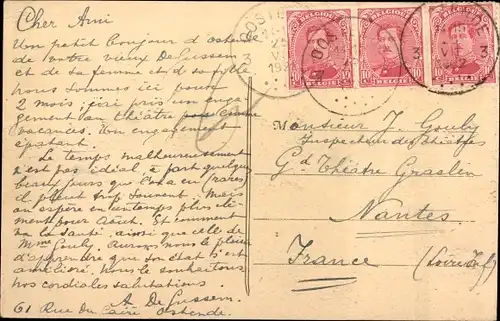 Cher Ami
Un petit bonjour d'ostende
de votre vieux De Gussem
et de sa femme et de sa fille
nous sommes ici pour
2 mois; j'ai pris un enga
gement au théâtre pour comme
vacances. Un engagement
épatant.
Le temps malheureusement
n'est pas idéal, à part quelques
beaux jours que c'est rare
il pleut trop souvent. Mais
on espère un temps plus clé
ment pour Août. Et comment
va la santé, ainsi que celle de
Mme Gouly. Aurons nous le plaisir
d'apprendre que son état s'est
amélioré. Nous le souhaitons
nos cordiales salutations.
A. De Gussem.
61 Rue du Caire Ostende.
BELGIQUE BELGIQUE BELGIQUE
10 10 10 10 10
BELGIË BELGIË BELGIË
Monsieur J. Gouly
Inspecteur des théâtres
Gd Théâtre Graslin
Nantes
France (Loire Inf)